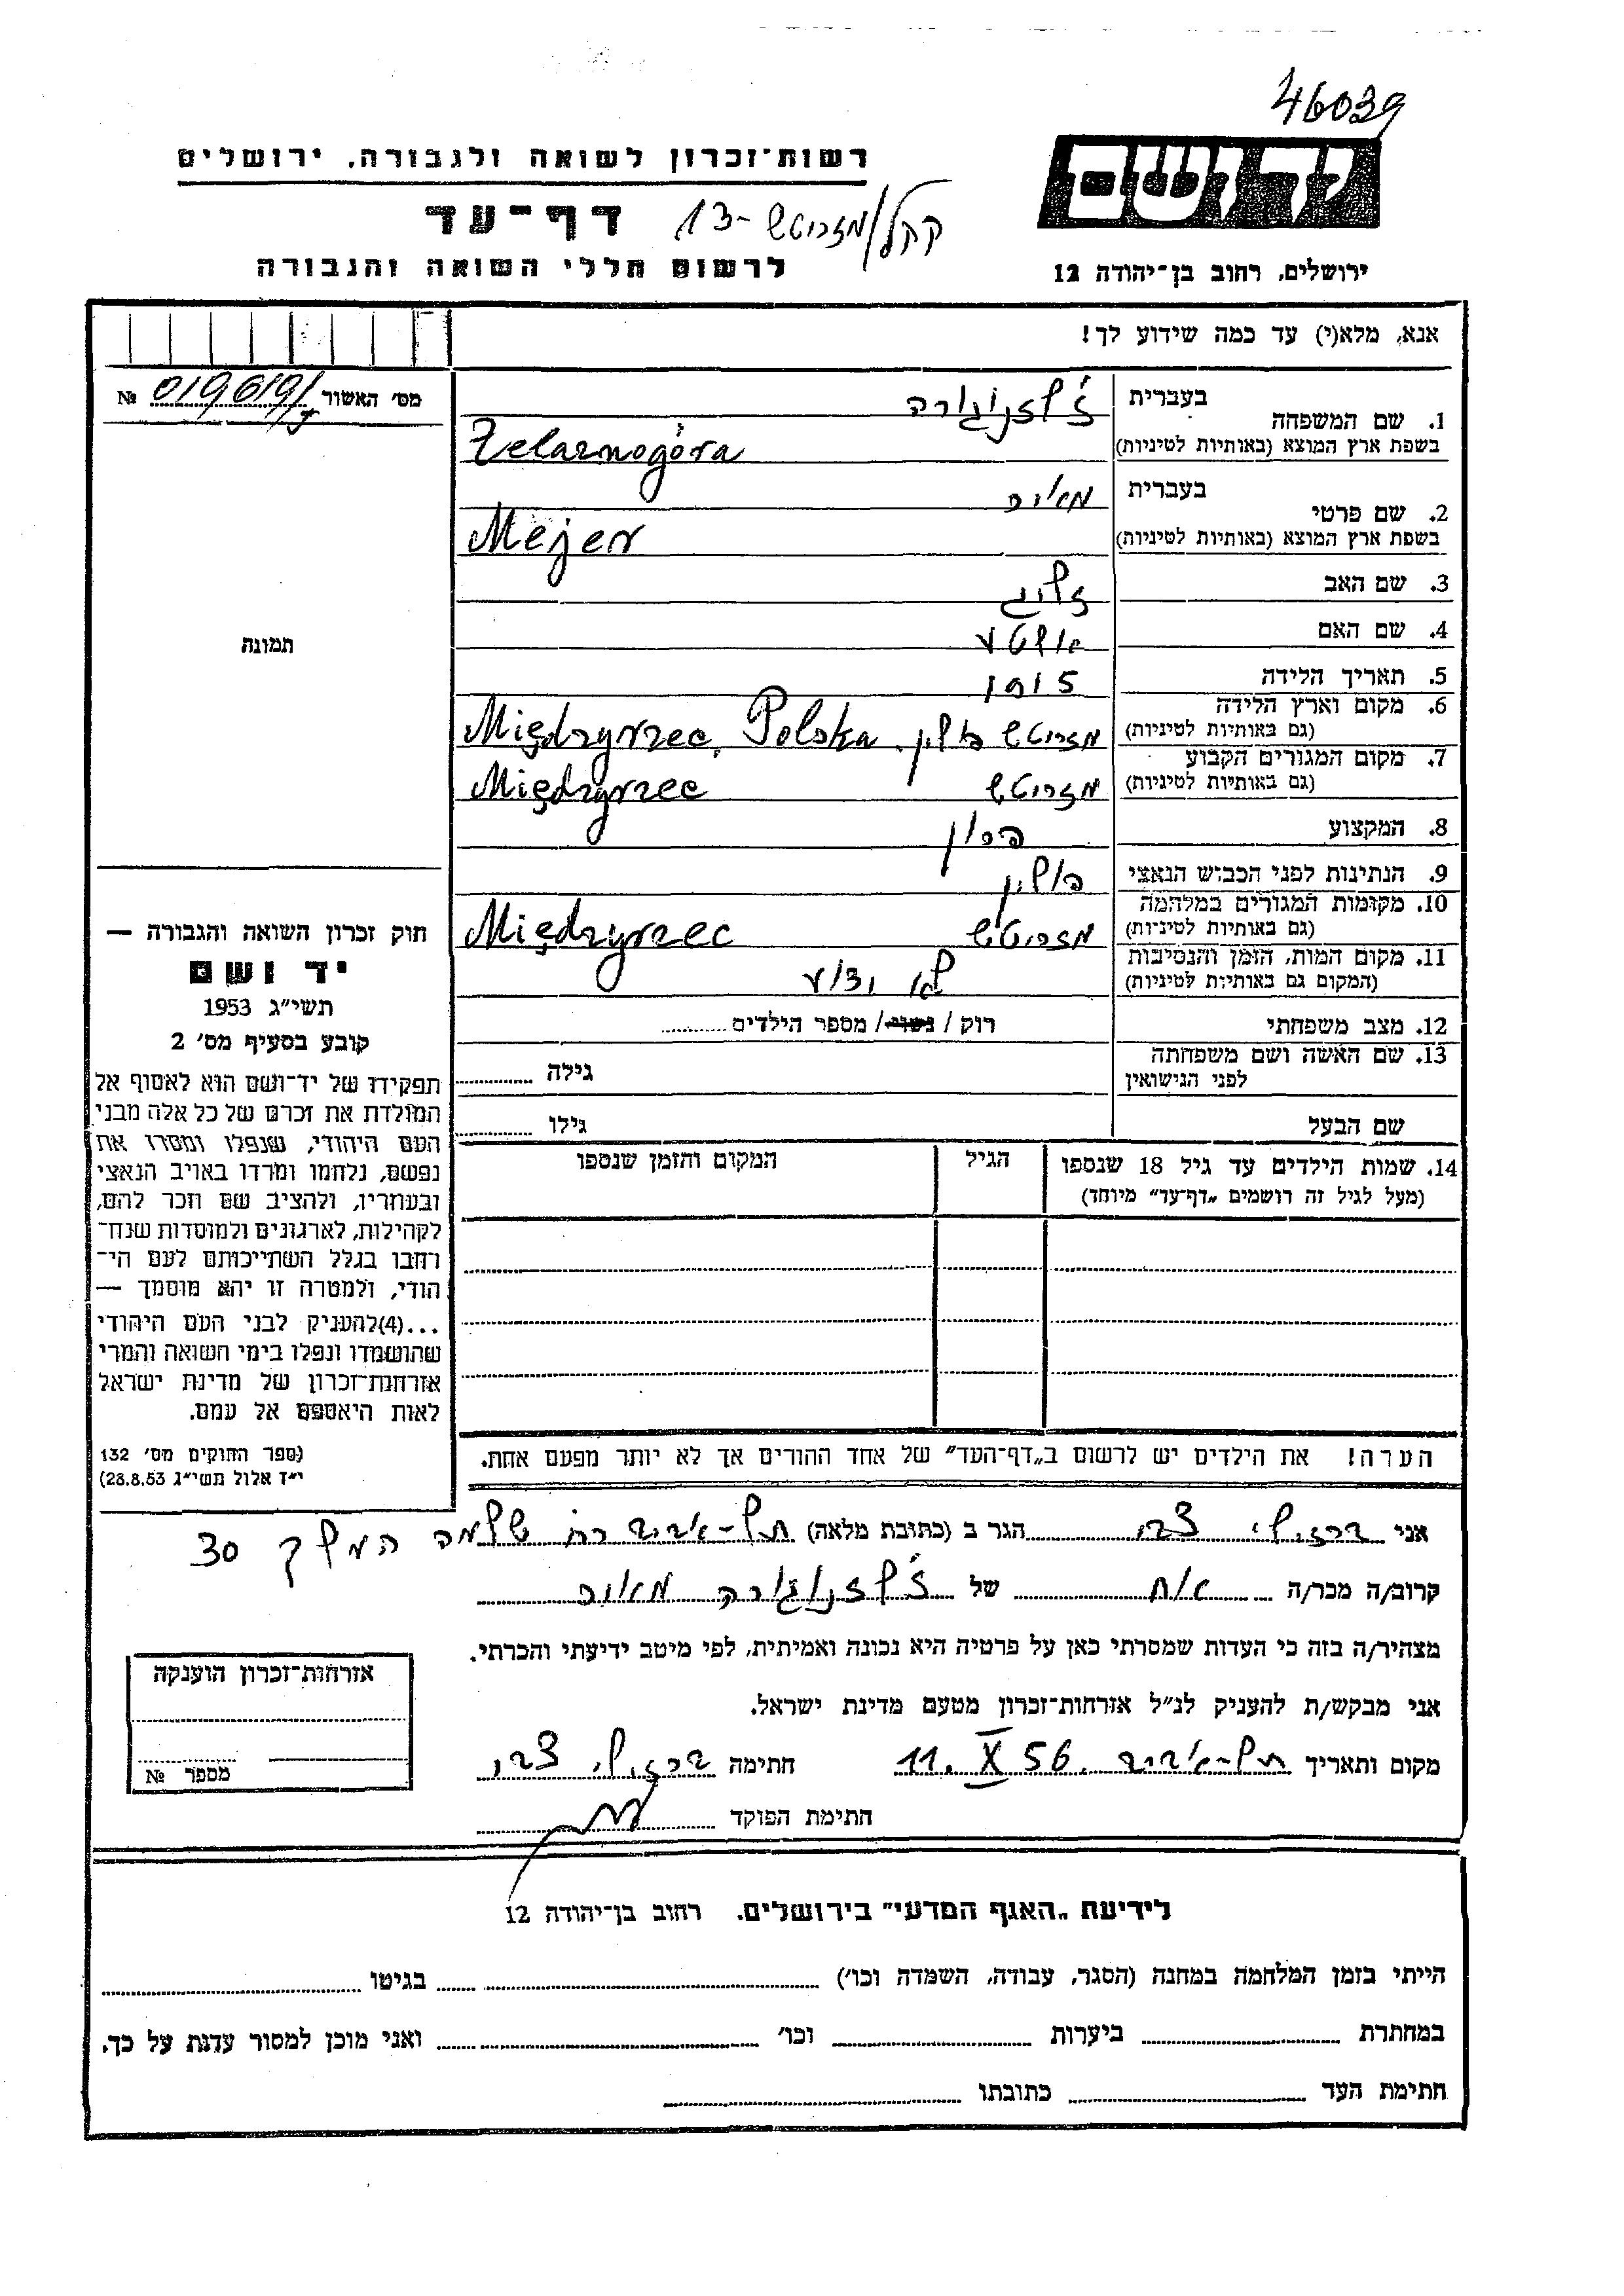 46039
יד ושם
רשות־זכרון לשואה ולגבורה, ירושלים
דף־עד
קהל/מזריטש -13
לרשום חללי השואה והגבורה
ירושלים, רחוב בן־יהודה 12
אנא, מלא(י) עד כמה שידוע לך!
מס׳ האשור № 019619/
תמונה
1. שם המשפחה
בעברית ז'לזנוגורה
בשפת ארץ המוצא (באותיות לטיניות) Żelaznogóra
2. שם פרטי
בעברית מאיר
בשפת ארץ המוצא (באותיות לטיניות) Mejer
3. שם האב זליג
4. שם האם
5. תאריך הלידה 1915
6. מקום וארץ הלידה
(גם באותיות לטיניות) מזריטש פולין. Międzyrzec, Polska
7. מקום המגורים הקבוע
(גם באותיות לטיניות) מזריטש Międzyrzec
8. המקצוע
9. הנתינות לפני הכבוש הנאצי פולין
10. מקומות המגורים במלחמה
(גם באותיות לטיניות) מזריטש Międzyrzec
11. מקום המות, הזמן והנסיבות
(המקום גם באותיות לטיניות) לא ידוע
12. מצב משפחתי רוק / נשוי / מספר הילדים
13. שם האשה ושם משפחתה
לפני הנישואין גילה
שם הבעל גילו
14. שמות הילדים עד גיל 18 שנספו
(מעל לגיל זה רושמים „דף־עד” מיוחד)
הגיל
המקום והזמן שנספו
הערה! את הילדים יש לרשום ב„דף־העד” של אחד ההורים אך לא יותר מפעם אחת.
חוק זכרון השואה והגבורה —
יד ושם
תשי״ג 1953
קובע בסעיף מס׳ 2
תפקידו של יד־ושם הוא לאסוף אל
המולדת את זכרם של כל אלה מבני
העם היהודי, שנפלו ומסרו את
נפשם, נלחמו ומרדו באויב הנאצי
ובעוזריו, ולהציב שם וזכר להם,
לקהילות, לארגונים ולמוסדות שנח־
רחבו בגלל השתייכותם לעם הי־
הודי, ולמטרה זו יהא מוסמך —
...(4)להעניק לבני העם היהודי
שהושמדו ונפלו בימי השואה והמרי
אזרחות־זכרון של מדינת ישראל
לאות היאספם אל עמם.
(ספר החוקים מס׳ 132
י״ז אלול תשי״ג 28.8.53)
אני ברזילי צבי הגר ב (כתובת מלאה) תל-אביב רח׳ שלמה המלך 30
קרוב/ה מכר/ה אח של ז'לזנוגורה מאיר
מצהיר/ה בזה כי העדות שמסרתי כאן על פרטיה היא נכונה ואמיתית, לפי מיטב ידיעתי והכרתי.
אני מבקש/ת להעניק לנ״ל אזרחות־זכרון מטעם מדינת ישראל.
מקום ותאריך תל-אביב. 11.X 56 חתימה ברזילי צבי
חתימת הפוקד
אזרחות־זכרון הוענקה
מספר №
לידיעת „האגף המדעי” בירושלים, רחוב בן־יהודה 12
הייתי בזמן המלחמה במחנה (הסגר, עבודה, השמדה וכו׳) בגיטו
במחתרת ביערות וכו׳ ואני מוכן למסור עדות על כך.
חתימת העד כתובתו